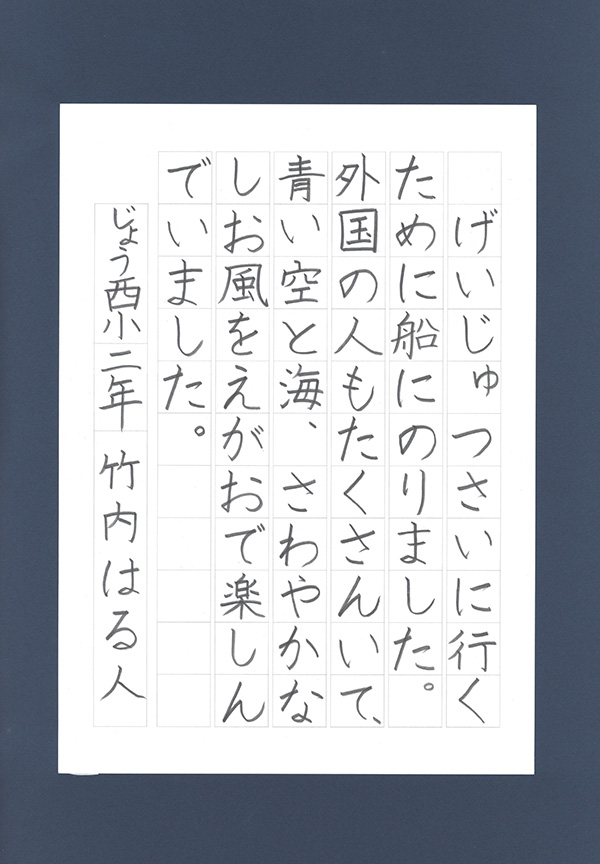 げいじゅつさいに行く
ために船にのりました。
外国の人もたくさんいて、
青い空と海、さわやかな
しお風をえがおで楽しん
でいました。
じょう西小二年 竹内はる人